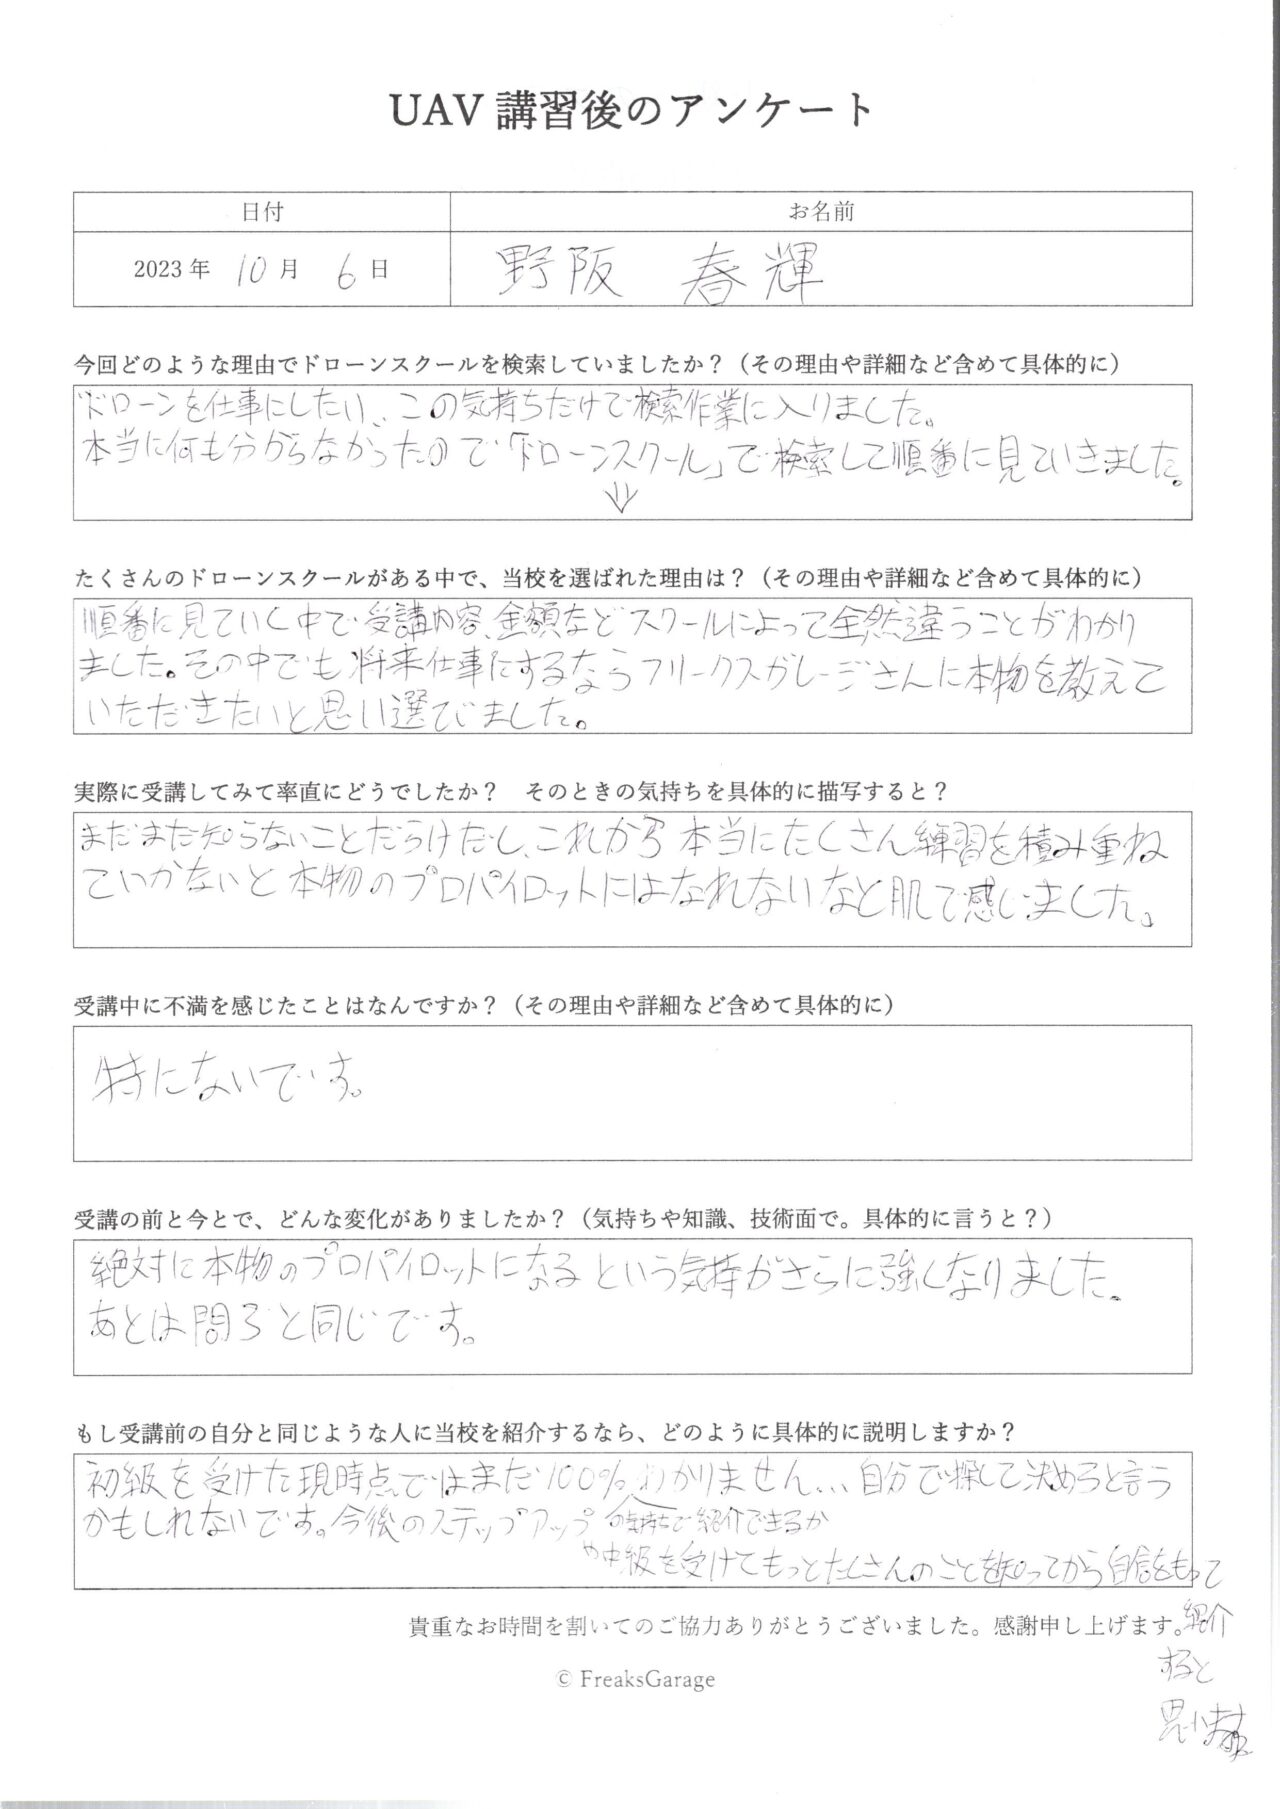 UAV 講習後のアンケート
日付 お名前
2023年 10月 6日 野阪 春輝
今回どのような理由でドローンスクールを検索していましたか？（その理由や詳細など含めて具体的に）
ドローンを仕事にしたい、この気持ちだけで検索作業に入りました。
本当に何も分からなかったので「ドローンスクール」で検索して順番に見ていきました。
↓
たくさんのドローンスクールがある中で、当校を選ばれた理由は？（その理由や詳細など含めて具体的に）
順番に見ていく中で受講内容、金額などスクールによって全然違うことがわかり
ました。その中でも将来仕事にするならフリークスガレージさんに本物を教えて
いただきたいと思い選びました。
実際に受講してみて率直にどうでしたか？　そのときの気持ちを具体的に描写すると？
まだまだ知らないことだらけだし、これから本当にたくさん練習を積み重ね
ていかないと本物のプロパイロットにはなれないなと肌で感じました。
受講中に不満を感じたことはなんですか？（その理由や詳細など含めて具体的に）
特にないです。
受講の前と今とで、どんな変化がありましたか？（気持ちや知識、技術面で。具体的に言うと？）
絶対に本物のプロパイロットになるという気持がさらに強くなりました。
あとは問3と同じです。
もし受講前の自分と同じような人に当校を紹介するなら、どのように具体的に説明しますか？
初級を受けた現時点ではまだ100%わかりません... 自分で探して決めろと言う
の気持ちで紹介できるか
かもしれないです。今後のステップアップ
や中級を受けてもっとたくさんのことを知ってから自信をもって
貴重なお時間を割いてのご協力ありがとうございました。感謝申し上げます。
紹介
すると
思います
© FreaksGarage